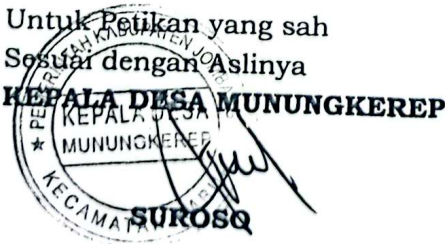 Untuk Petikan yang sah
Sesuai dengan Aslinya
KEPALA DESA MUNUNGKEREP
KEPALA DESA
MUNUNGKEREP
KECAMATAN
SUROSO